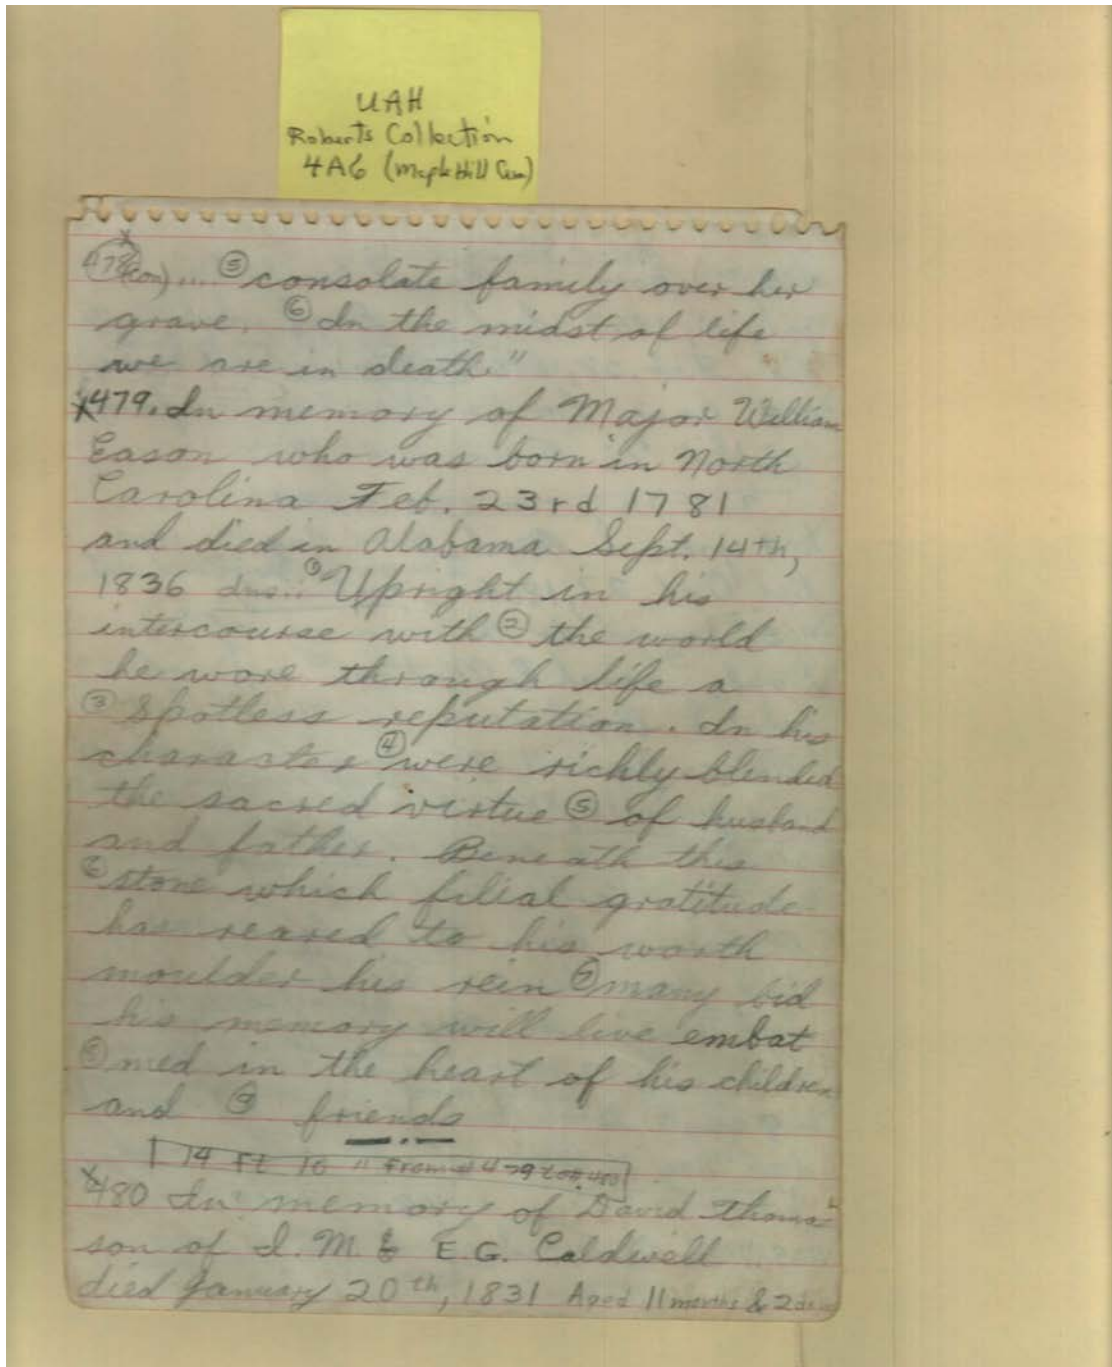 UAH
Roberts Collection
4A6 (Maple Hill Cem)
478 (con)... ⑤ consolate family over her
grave. ⑥ In the midst of life
we are in death."
x479. In memory of Major William
Eason who was born in North
Carolina Feb. 23rd 1781
and died in Alabama Sept. 14th,
1836 ① Upright in his
intercourse with ② the world
he wore through life a
③ spotless reputation. In his
character ④ were richly blended
the sacred virtue ⑤ of husband
and father. Beneath this
⑥ stone which filial gratitude
has reared to his worth
moulder his rein ⑦ many bid
his memory will live embat
⑧ med in the heart of his children
and ⑨ friends
14 ft 10 " from # 479 to #480
x480 In memory of David Thomas
son of I. M & E.G. Caldwell
died January 20th, 1831 Aged 11 months & 2 days